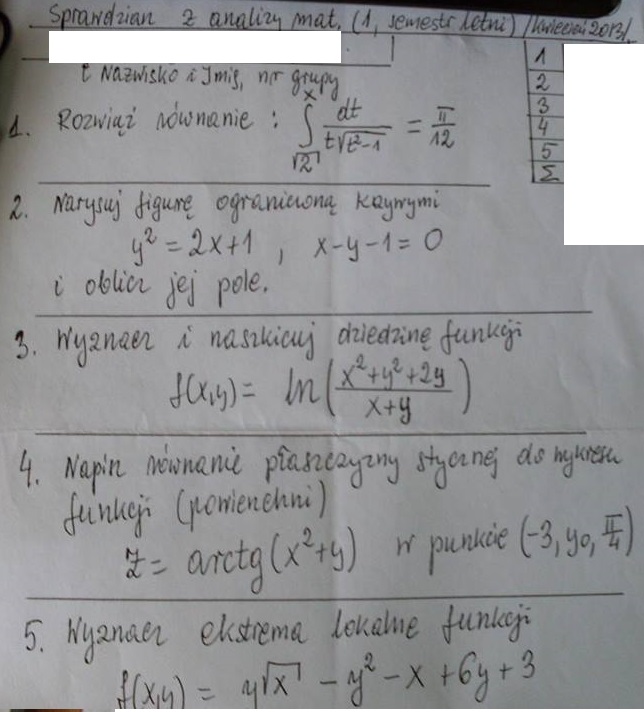 Sprawdzian z analizy mat. (1, semestr letni) /kwiecień 2013/.
↑ Nazwisko i Imię, nr grupy
1
2
3
4
5
Σ
1. Rozwiąż równanie : ∫_{√2}^{x} dt / (t√(t²-1)) = π/12
2. Narysuj figurę ograniczoną krzywymi
y² = 2x+1 , x-y-1 = 0
i oblicz jej pole.
3. Wyznacz i naszkicuj dziedzinę funkcji
f(x,y) = ln( (x²+y²+2y) / (x+y) )
4. Napisz równanie płaszczyzny stycznej do wykresu
funkcji (powierzchni)
z = arctg(x²+y) w punkcie (-3, y₀, π/4)
5. Wyznacz ekstrema lokalne funkcji
f(x,y) = y√x - y² - x + 6y + 3